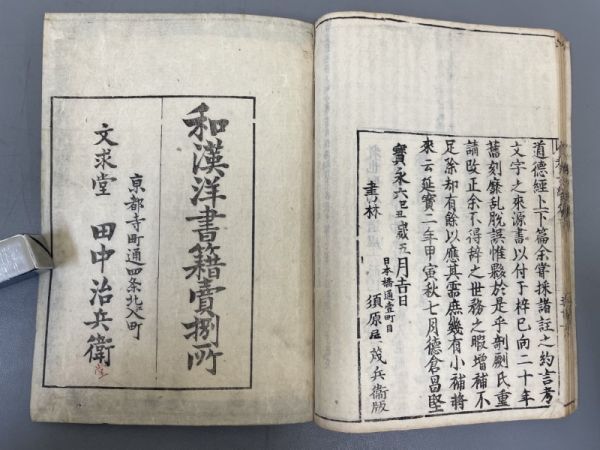 道德經上下篇余嘗採諸註之約言考
文字之來源書以付于梓已向二十年
舊刻靡乱脫誤惟夥於是乎剞劂氏重
請改正余不得辞之世務之暇增補不
足除却有餘以應其需庶幾有小補將
來云延寶二年甲寅秋七月德倉昌堅
寶永六己丑歳五月吉日
日本橋通壹町目
書林 須原屋茂兵衛版
和漢洋書籍賣捌所
京都寺町通四条北入町
文求堂 田中治兵衛